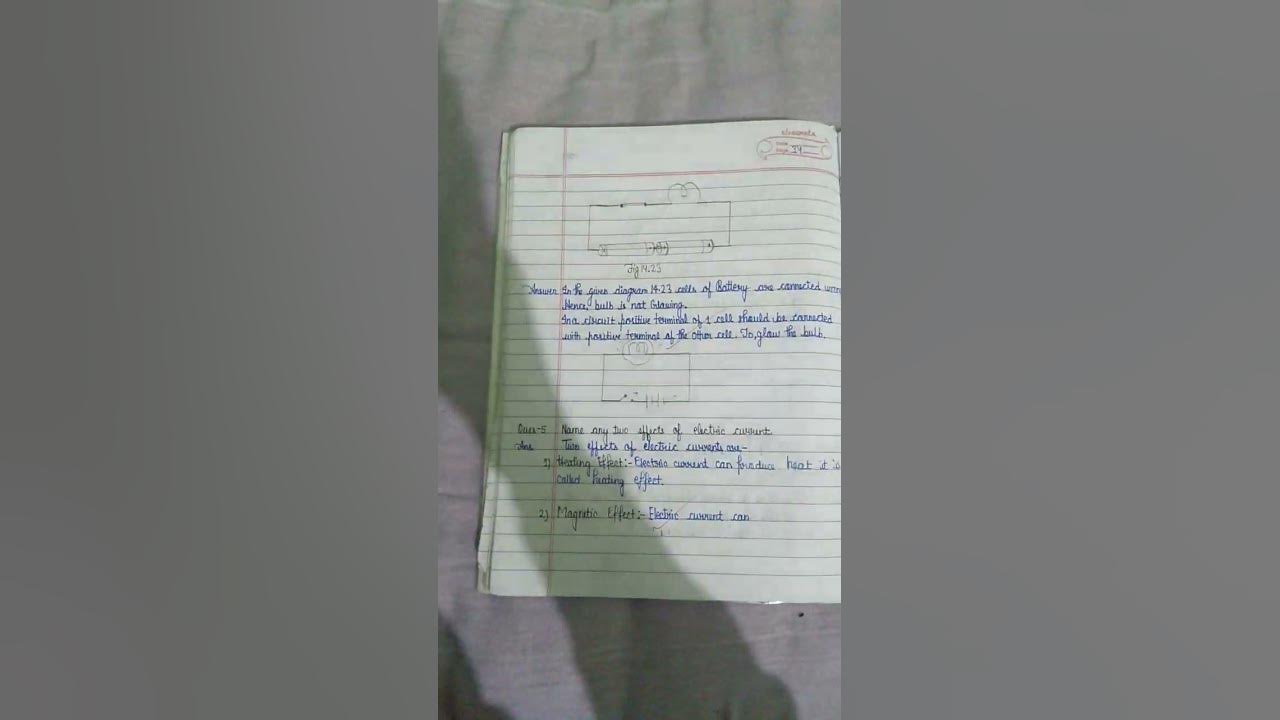 classmate
Date
Page 14
Fig 14.23
Answer In the given diagram 14.23 cells of Battery are connected
Hence, bulb is not Glowing.
In a circuit positive terminal of 1 cell should be connected
with positive terminal of the other cell. To, glow the bulb.
Ques-5 Name any two effects of electric current
Ans Two effects of electric currents are-
1) Heating Effect:- Electric current can produce heat it is
called heating effect.
2) Magnetic Effect:- Electric current can